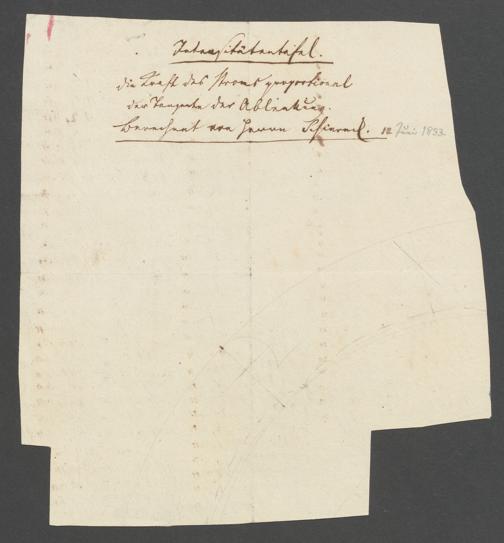 Intensitätentafel.
die Kraft des Stroms proportional
der Tangente der Ablenkung.
Berechnet von Herrn 12 Juni 1833.